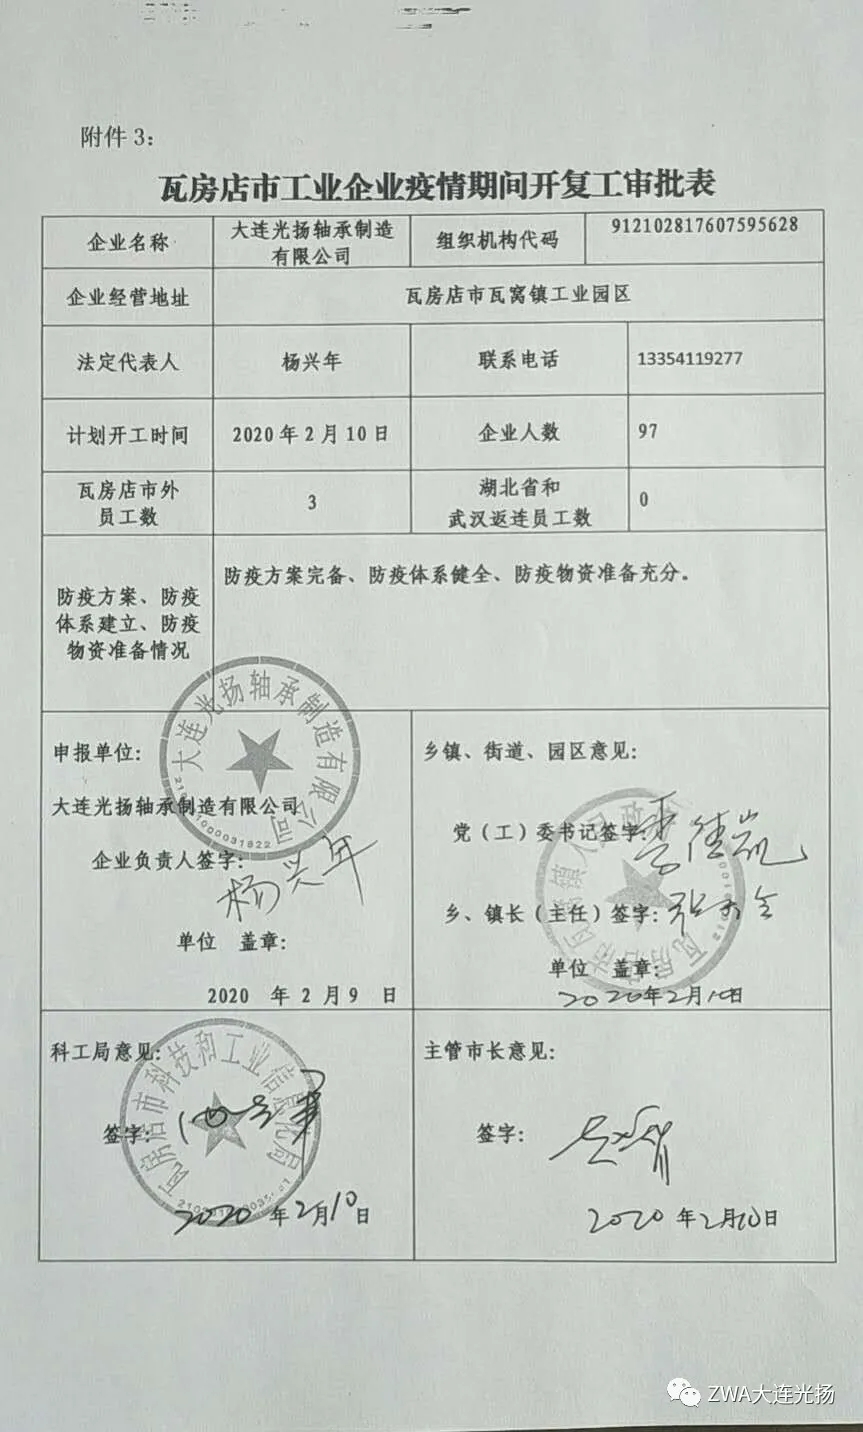 附件 3：
瓦房店市工业企业疫情期间开复工审批表
企业名称
大连光扬轴承制造
有限公司
组织机构代码
912102817607595628
企业经营地址
瓦房店市瓦窝镇工业园区
法定代表人
杨兴年
联系电话
13354119277
计划开工时间
2020 年 2 月 10 日
企业人数
97
瓦房店市外
员工数
3
湖北省和
武汉返连员工数
0
防疫方案、防疫
体系建立、防疫
物资准备情况
防疫方案完备、防疫体系健全、防疫物资准备充分。
申报单位：
大连光扬轴承制造有限公司
企业负责人签字：
杨兴年
单位 盖章：
2020 年 2 月 9 日
大连光扬轴承制造有限公司
乡镇、街道、园区意见：
党（工）委书记签字：
乡、镇长（主任）签字：
单位 盖章：
2020年2月10日
科工局意见：
签字：
2020 年2月10日
瓦房店市科技和工业信息化局
主管市长意见：
签字：
2020 年2月10日
ZWA大连光扬